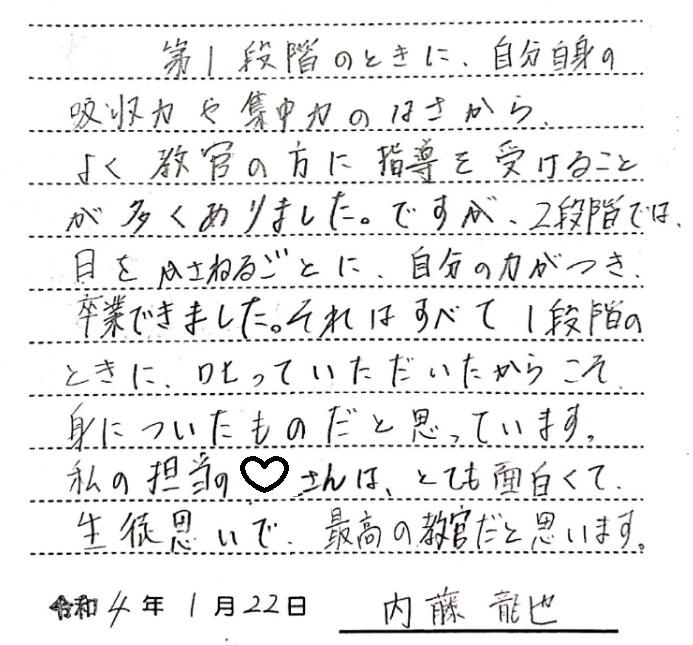 第1段階のときに、自分自身の
吸収力や集中力のはさから、
よく教官の方に指導を受けること
が多くありました。ですが、2段階では、
日をかさねるごとに、自分の力がつき、
卒業できました。それはすべて1段階の
ときに、叱っていただいたからこそ、
身についたものだと思っています。
私の担当の♡さんは、とても面白くて、
生徒思いで、最高の教官だと思います。
令和4年1月22日 内藤龍也